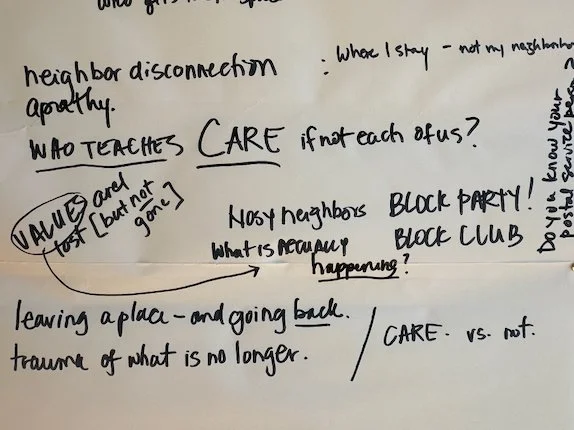 neighbor disconnection
: Where I stay - not my neighborhoo
apathy.
WHO TEACHES CARE if not each of us?
VALUES are
lost [but not
gone]
Nosy neighbors
BLOCK PARTY!
What is ACTUALLY
happening?
BLOCK CLUB
Do you know your
postal service person?
leaving a place - and going back.
trauma of what is no longer.
/ CARE. vs. not.